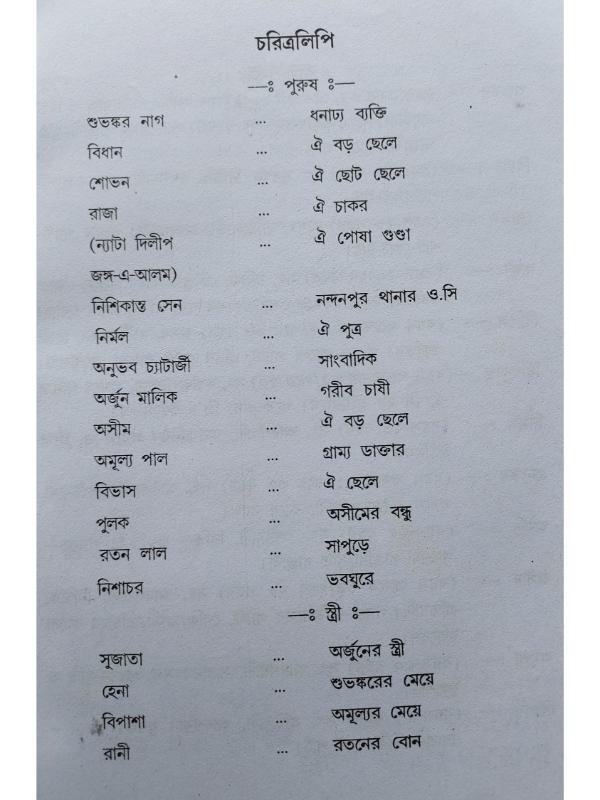 চরিত্রলিপি
—ঃ পুরুষ ঃ—
শুভঙ্কর নাগ ... ধনাঢ্য ব্যক্তি
বিধান ... ঐ বড় ছেলে
শোভন ... ঐ ছোট ছেলে
রাজা ... ঐ চাকর
(ন্যাটা দিলীপ ... ঐ পোষা গুণ্ডা
জঙ্গ-এ-আলম)
নিশিকান্ত সেন ... নন্দনপুর থানার ও.সি
নির্মল ... ঐ পুত্র
অনুভব চ্যাটার্জী ... সাংবাদিক
অর্জুন মালিক ... গরীব চাষী
অসীম ... ঐ বড় ছেলে
অমূল্য পাল ... গ্রাম্য ডাক্তার
বিভাস ... ঐ ছেলে
পুলক ... অসীমের বন্ধু
রতন লাল ... সাপুড়ে
নিশাচর ... ভবঘুরে
—ঃ স্ত্রী ঃ—
সুজাতা ... অর্জুনের স্ত্রী
হেনা ... শুভঙ্করের মেয়ে
বিপাশা ... অমূল্যর মেয়ে
রানী ... রতনের বোন